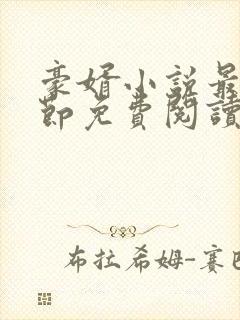 豪婿小説最
節免費閱讀
布拉希姆-賽巴